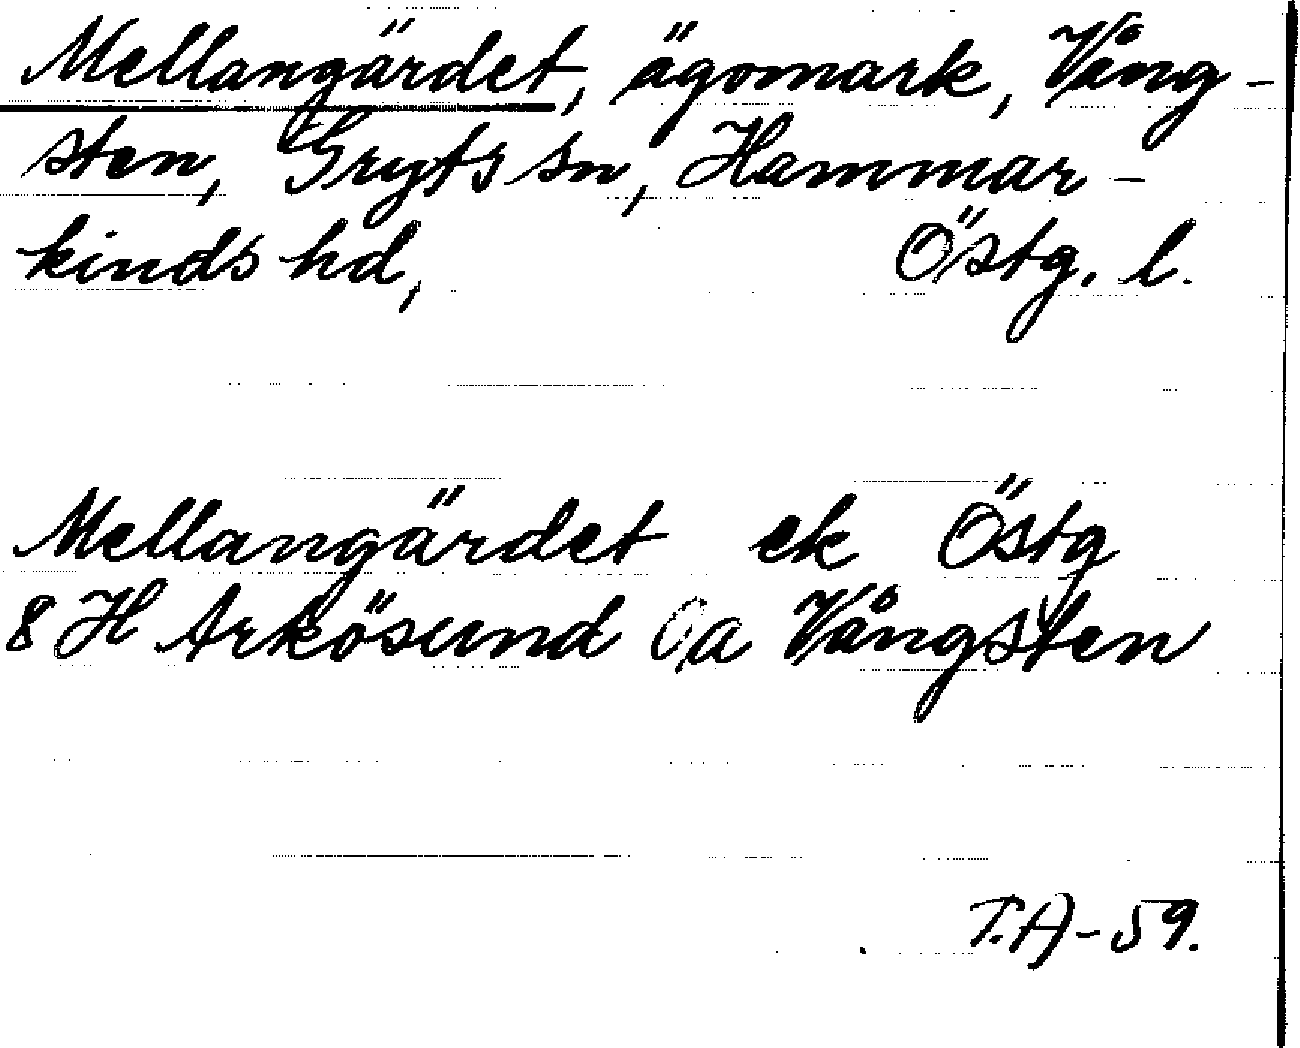 Mellangärdet, ägomark, Vång-
sten, Gryts sn, Hammar-
kinds hd, Östg. l.
Mellangärdet ek Östg
8 H Arkösund 0a Vångsten
T.A-59.